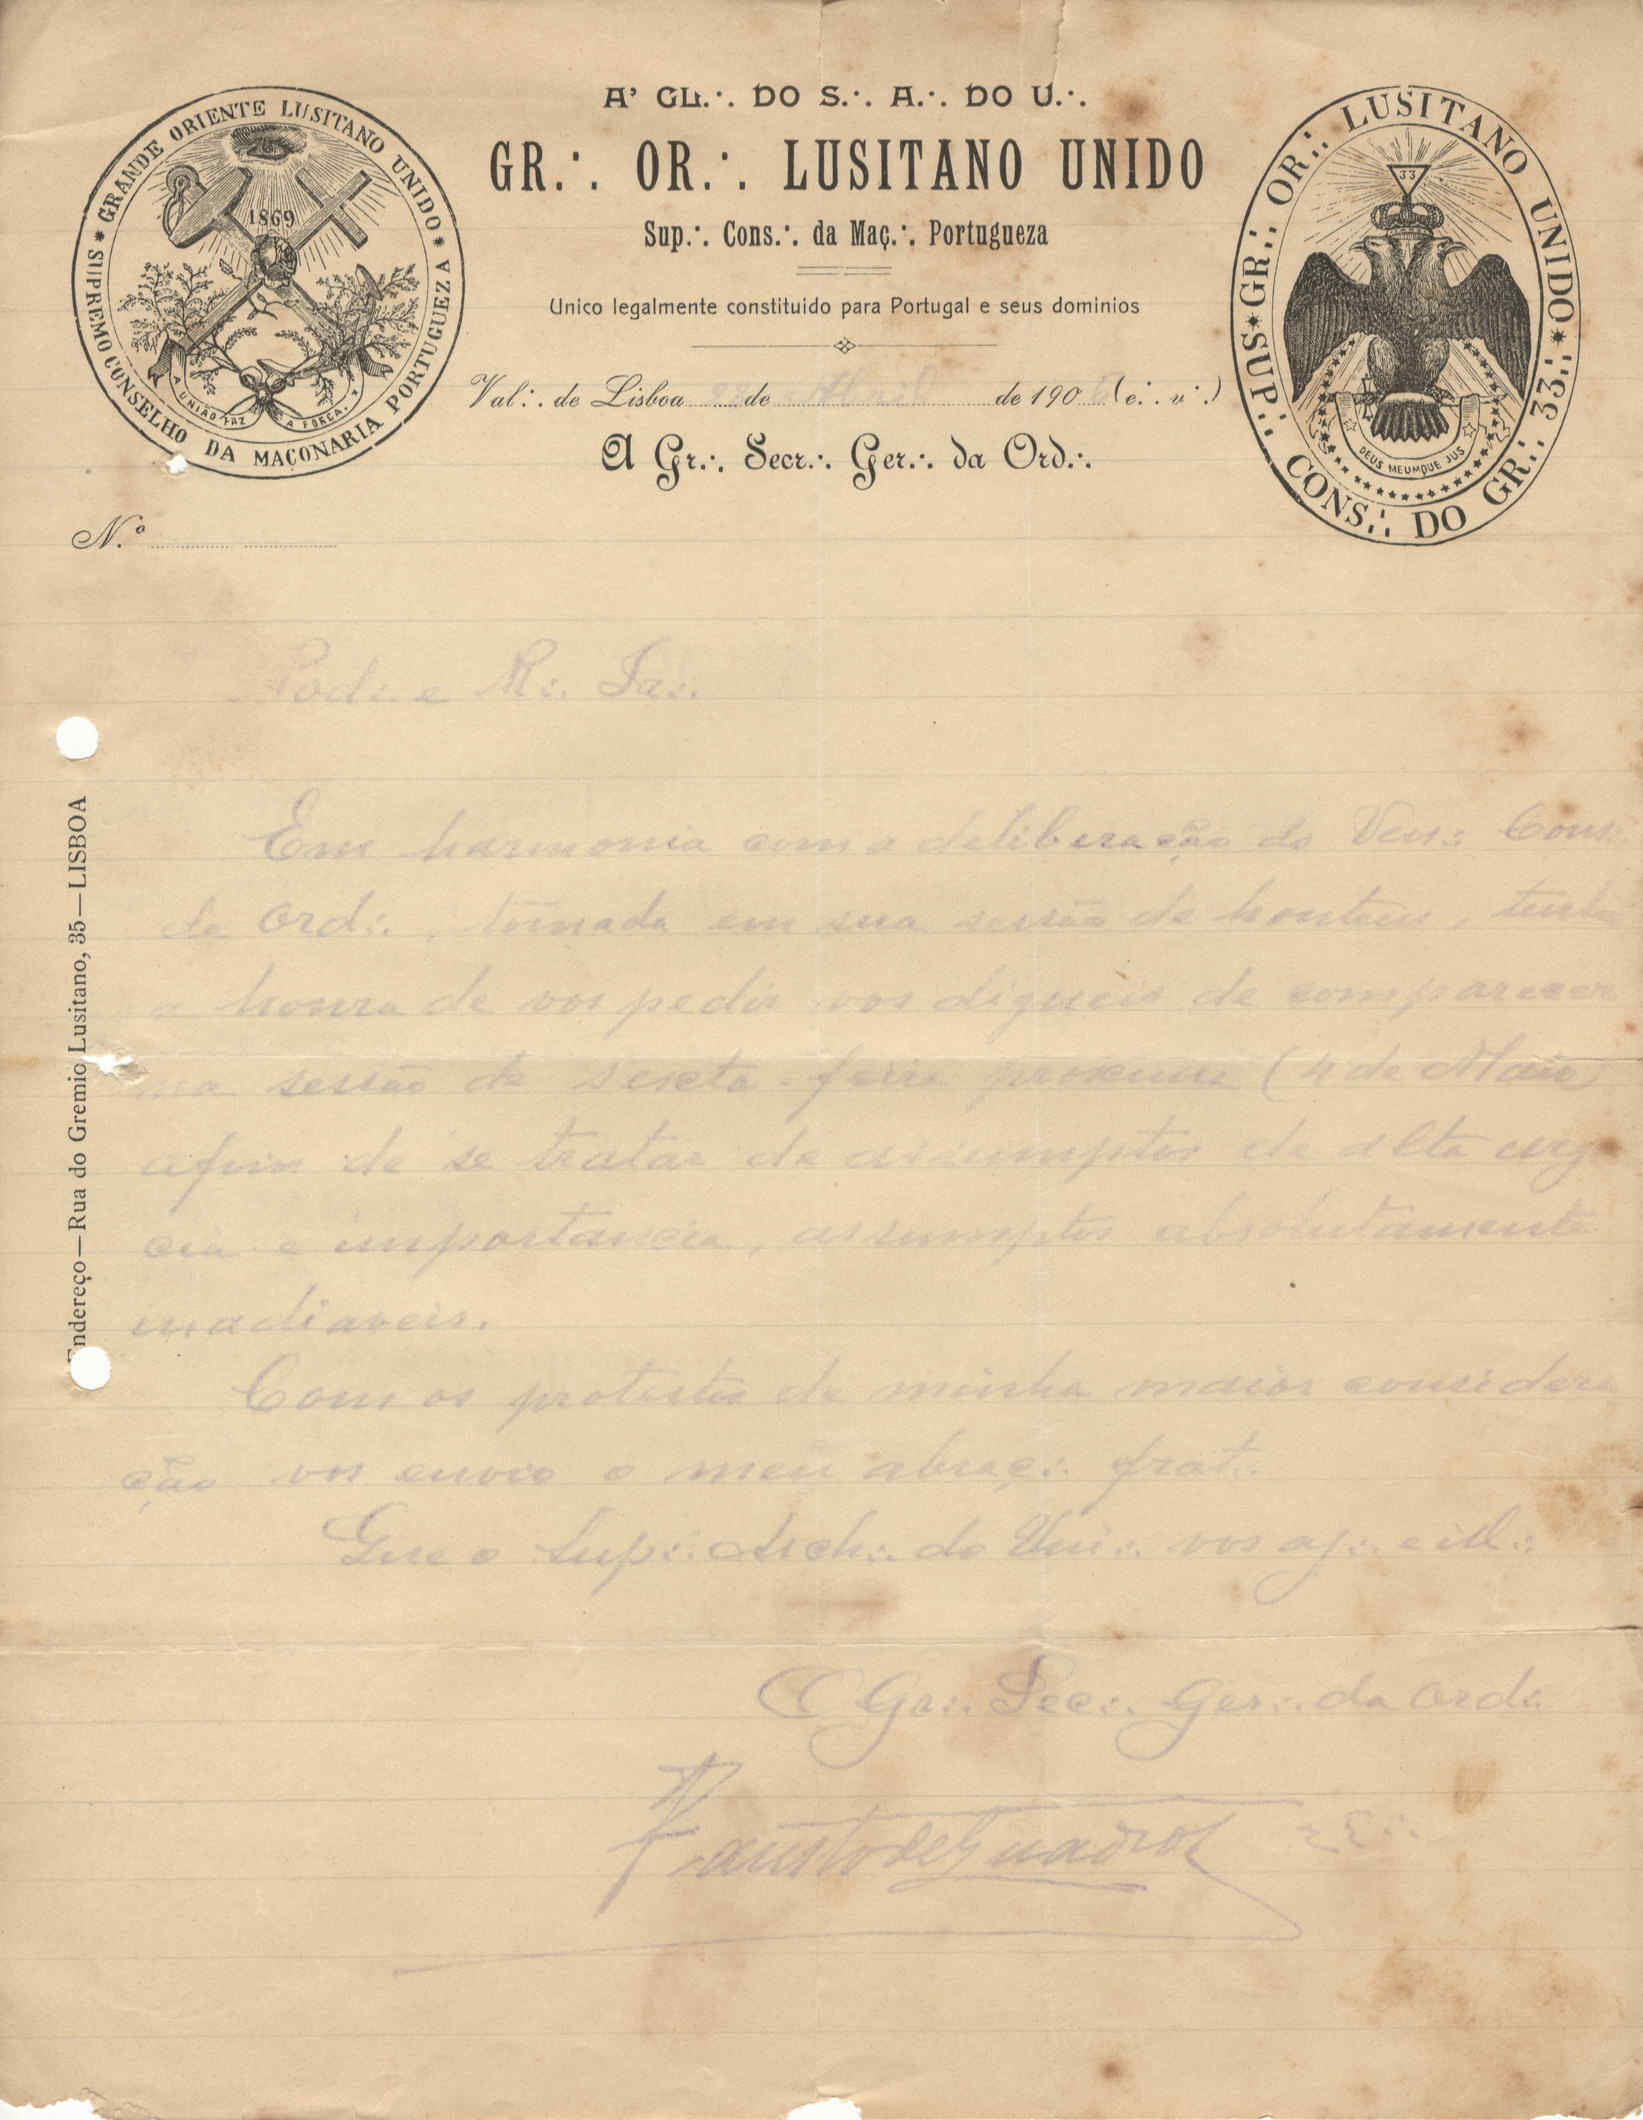 A' GL.·. DO S.·. A.·. DO U.·.
GR.·. OR.·. LUSITANO UNIDO
Sup.·. Cons.·. da Maç.·. Portugueza
Unico legalmente constituido para Portugal e seus dominios
Val.·. de Lisboa 28 de Abril de 1906 (e.·. v.·.)
A Gr.·. Secr.·. Ger.·. da Ord.·.
GRANDE ORIENTE LUSITANO UNIDO
* SUPREMO CONSELHO DA MAÇONARIA PORTUGUEZA *
1869
A UNIÃO FAZ A FORÇA.
SUP.·. CONS.·. DO GR.·. 33.·.
* GR.·. OR.·. LUSITANO UNIDO *
33
DEUS MEUMQUE JUS
N.º
Pod.·. e R.·. Ir.·.
Em harmonia com a deliberação do Ven.·. Cons.·.
da Ord.·., tomada em sua sessão de hontem, tenho
a honra de vos pedir vos digneis de comparecer
na sessão de sexta feira proxima (4 de Maio)
afim de se tratar de assumptos de alta urg
cia e importancia, assumptos absolutamente
inadiaveis.
Com os protestos da minha maior considera
ção vos envio o meu abraç.·. frat.·.
Que o Sup.·. Arch.·. do Uni.·. vos aj.·. e ill.·.
O Gr.·. Sec.·. Ger.·. da Ord.·.
Fausto de Quadros
Endereço—Rua do Gremio Lusitano, 35—LISBOA